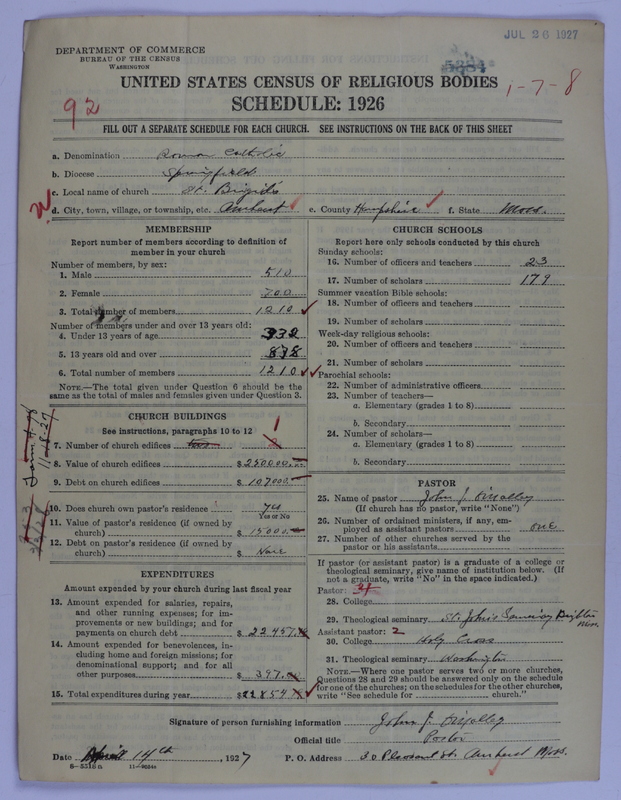 JUL 26 1927
DEPARTMENT OF COMMERCE
BUREAU OF THE CENSUS
WASHINGTON
5384
UNITED STATES CENSUS OF RELIGIOUS BODIES
1-7-8
92
SCHEDULE: 1926
FILL OUT A SEPARATE SCHEDULE FOR EACH CHURCH. SEE INSTRUCTIONS ON THE BACK OF THIS SHEET
a. Denomination Roman Catholic
b. Diocese Springfield
c. Local name of church St. Brigid's
d. City, town, village, or township, etc. Amherst e. County Hampshire f. State Mass.
MEMBERSHIP
Report number of members according to definition of member in your church
Number of members, by sex:
1. Male 510
2. Female 700
3. Total number of members 1210
Number of members under and over 13 years old:
4. Under 13 years of age 332
5. 13 years old and over 878
6. Total number of members 1210
NOTE.—The total given under Question 6 should be the
same as the total of males and females given under Question 3.
CHURCH BUILDINGS
See instructions, paragraphs 10 to 12
7. Number of church edifices 1
8. Value of church edifices $ 250000.
9. Debt on church edifices $ 107000.
10. Does church own pastor's residence? yes
Yes or No
11. Value of pastor's residence (if owned by
church) $ 15000
12. Debt on pastor's residence (if owned by
church) $ None
EXPENDITURES
Amount expended by your church during last fiscal year
13. Amount expended for salaries, repairs,
and other running expenses; for im-
provements or new buildings; and for
payments on church debt $ 22457.
14. Amount expended for benevolences, in-
cluding home and foreign missions; for
denominational support; and for all
other purposes $ 397.
15. Total expenditures during year $ 22854
CHURCH SCHOOLS
Report here only schools conducted by this church
Sunday schools:
16. Number of officers and teachers 23
17. Number of scholars 179
Summer vacation Bible schools:
18. Number of officers and teachers
19. Number of scholars
Week-day religious schools:
20. Number of officers and teachers
21. Number of scholars
Parochial schools:
22. Number of administrative officers
23. Number of teachers—
a. Elementary (grades 1 to 8)
b. Secondary
24. Number of scholars—
a. Elementary (grades 1 to 8)
b. Secondary
PASTOR
25. Name of pastor John J. O'Malley
(If church has no pastor, write "None")
26. Number of ordained ministers, if any, em-
ployed as assistant pastors one
27. Number of other churches served by the
pastor or his assistants
If pastor (or assistant pastor) is a graduate of a college or
theological seminary, give name of institution below. (If
not a graduate, write "No" in the space indicated.)
Pastor:
28. College
29. Theological seminary St. John's Seminary Brighton Mass.
Assistant pastor: 2
30. College Holy Cross
31. Theological seminary Washington
NOTE.—Where one pastor serves two or more churches,
Questions 28 and 29 should be answered only on the schedule
for one of the churches; on the schedules for the other churches,
write "See schedule for church."
Signature of person furnishing information John J. O'Malley
Official title Pastor
Date April 14th, 1927 P. O. Address 30 Pleasant St. Amherst Mass.
8-5518 a